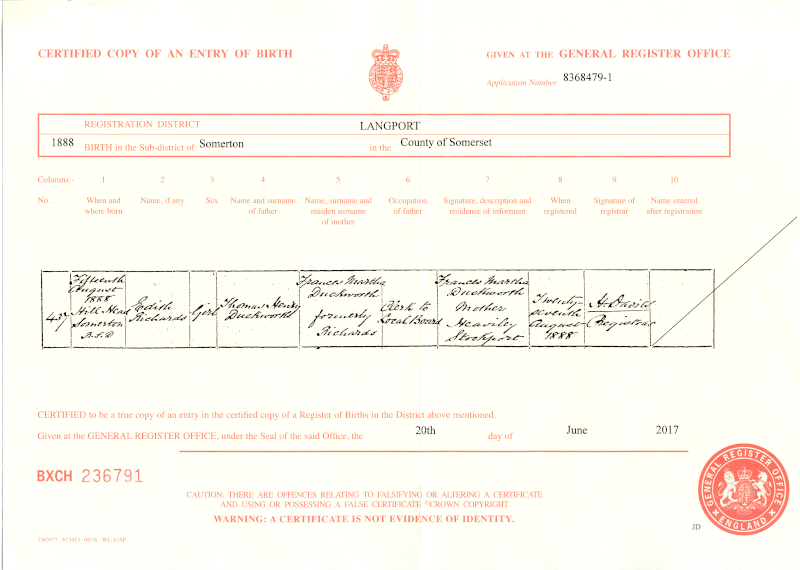 CERTIFIED COPY OF AN ENTRY OF BIRTH
GIVEN AT THE GENERAL REGISTER OFFICE
Application Number 8368479-1
REGISTRATION DISTRICT LANGPORT
1888 BIRTH in the Sub-district of Somerton in the County of Somerset
Columns:- 1 2 3 4 5 6 7 8 9 10
No. When and where born Name, if any Sex Name and surname of father Name, surname and maiden surname of mother Occupation of father Signature, description and residence of informant When registered Signature of registrar Name entered after registration
437
Fifteenth
August
1888
Hill Head
Somerton
R.S.D
Edith
Richards
Girl
Thomas Henry
Duckworth
Frances Martha
Duckworth
formerly
Richards
Clerk to
Local Board
Frances Martha
Duckworth
Mother
Heaviley
Stockport
Twenty-
seventh
August
1888
H. Davies
Registrar
CERTIFIED to be a true copy of an entry in the certified copy of a Register of Births in the District above mentioned.
Given at the GENERAL REGISTER OFFICE, under the Seal of the said Office, the 20th day of June 2017
BXCH 236791
CAUTION: THERE ARE OFFENCES RELATING TO FALSIFYING OR ALTERING A CERTIFICATE
AND USING OR POSSESSING A FALSE CERTIFICATE ©CROWN COPYRIGHT
WARNING: A CERTIFICATE IS NOT EVIDENCE OF IDENTITY.
GENERAL REGISTER OFFICE
ENGLAND
JD